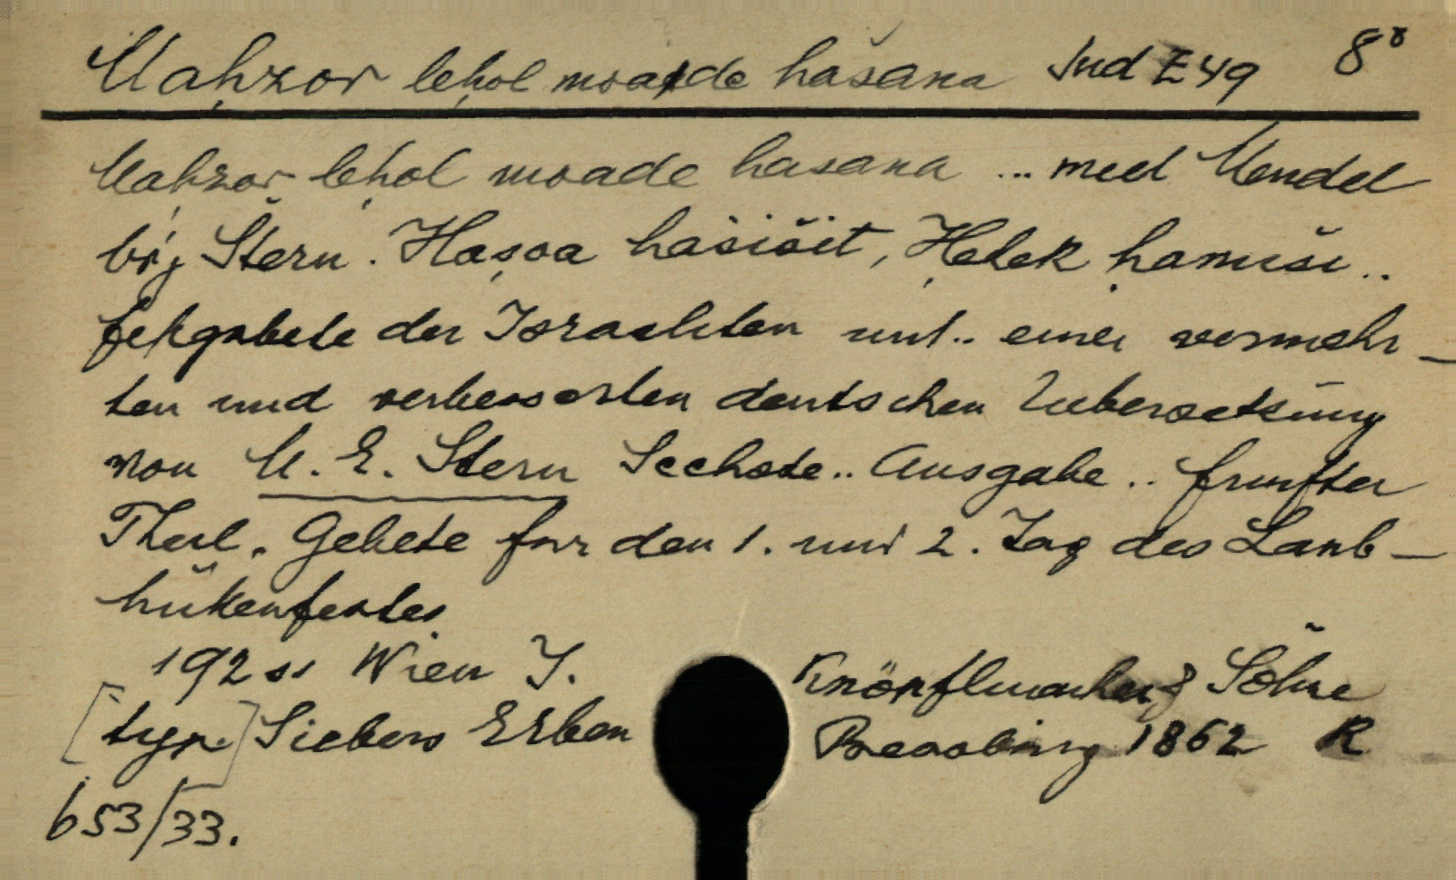 Maḥzor leḥol moade hašana Jud E 49 8°
Maḥzor leḥol moade hašana ... meet Mendel
brj Štern. Haṣoa hašišit, Ḥelek ḥamiši ..
festgebete der Israeliten mit .. einer vermehr-
ten und verbesserten deutschen Uebersetzung
von M. E. Stern Sechste .. Ausgabe .. fuenfter
Theil. Gebete für den 1. und 2. Tag des Laub-
hüttenfestes
192 ss Wien J. Knöpflmacher & Söhne
[typ.] Siebers Erben Pressburg 1862 R
653/33.